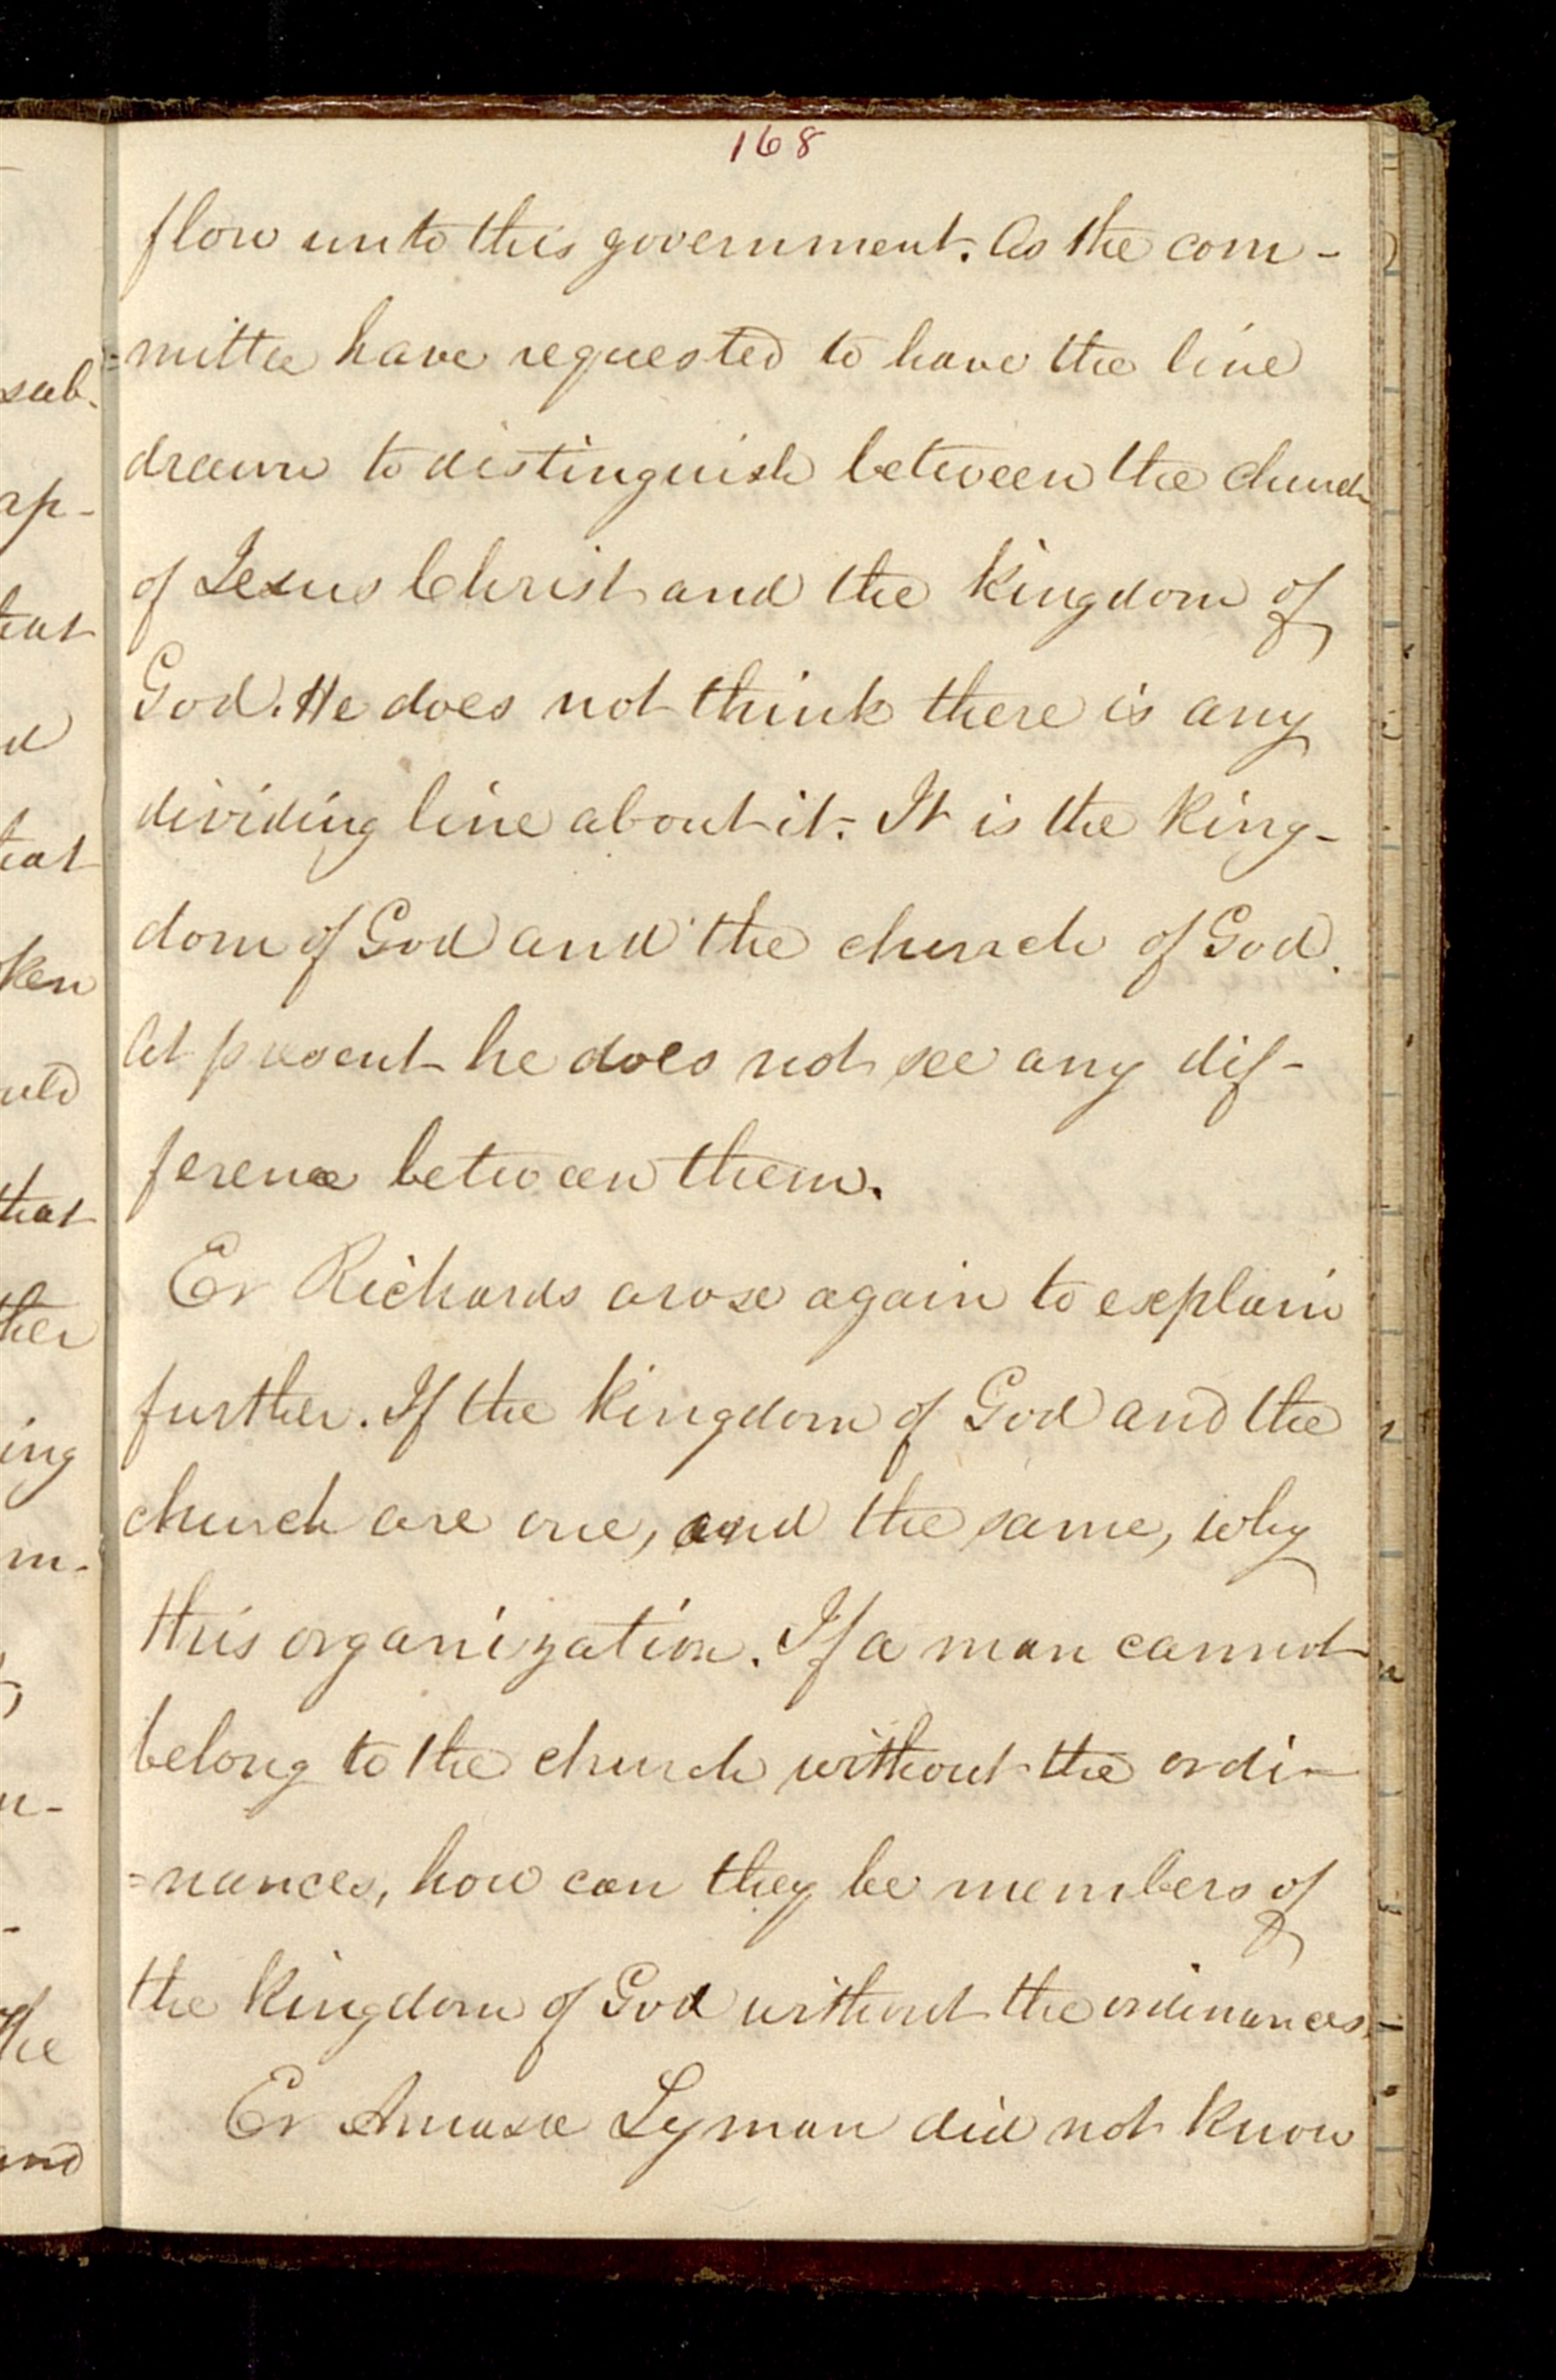 168
flow unto this government. As the com-
=mittee have requested to have the line
drawn to distinguish between the church
of Jesus Christ and the kingdom of
God. He does not think there is any
dividing line about it. It is the king-
dom of God and the church of God.
At present he does not see any dif-
ference between them.
Er Richards arose again to explain
further. If the kingdom of God and the
church are one, and the same, why
this organization. If a man cannot
belong to the church without the ordi-
=nances, how can they be members of
the kingdom of God without the ordinances.
Er Amasa Lyman did not know
sub-
ap-
that
d
that
ken
uld
that
ther
ing
m-
n-
-
the
and